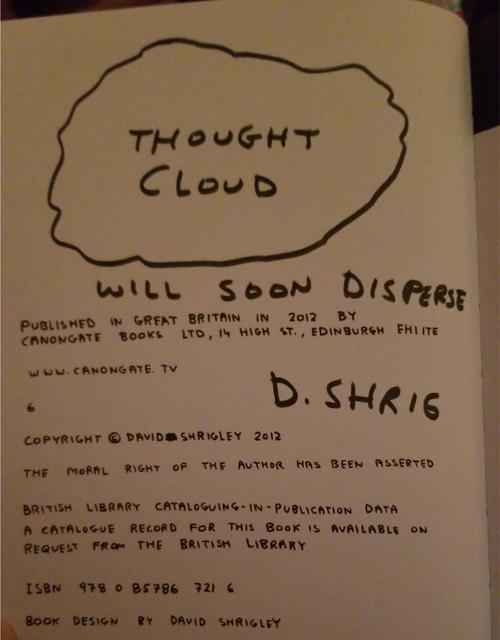 THOUGHT
CLOUD
WILL SOON DISPERSE
PUBLISHED IN GREAT BRITAIN IN 2012 BY
CANONGATE BOOKS LTD, 14 HIGH ST., EDINBURGH EH1 1TE
WWW.CANONGATE.TV
D. SHRIG
6
COPYRIGHT © DAVID SHRIGLEY 2012
THE MORAL RIGHT OF THE AUTHOR HAS BEEN ASSERTED
BRITISH LIBRARY CATALOGUING-IN-PUBLICATION DATA
A CATALOGUE RECORD FOR THIS BOOK IS AVAILABLE ON
REQUEST FROM THE BRITISH LIBRARY
ISBN 978 0 85786 721 6
BOOK DESIGN BY DAVID SHRIGLEY